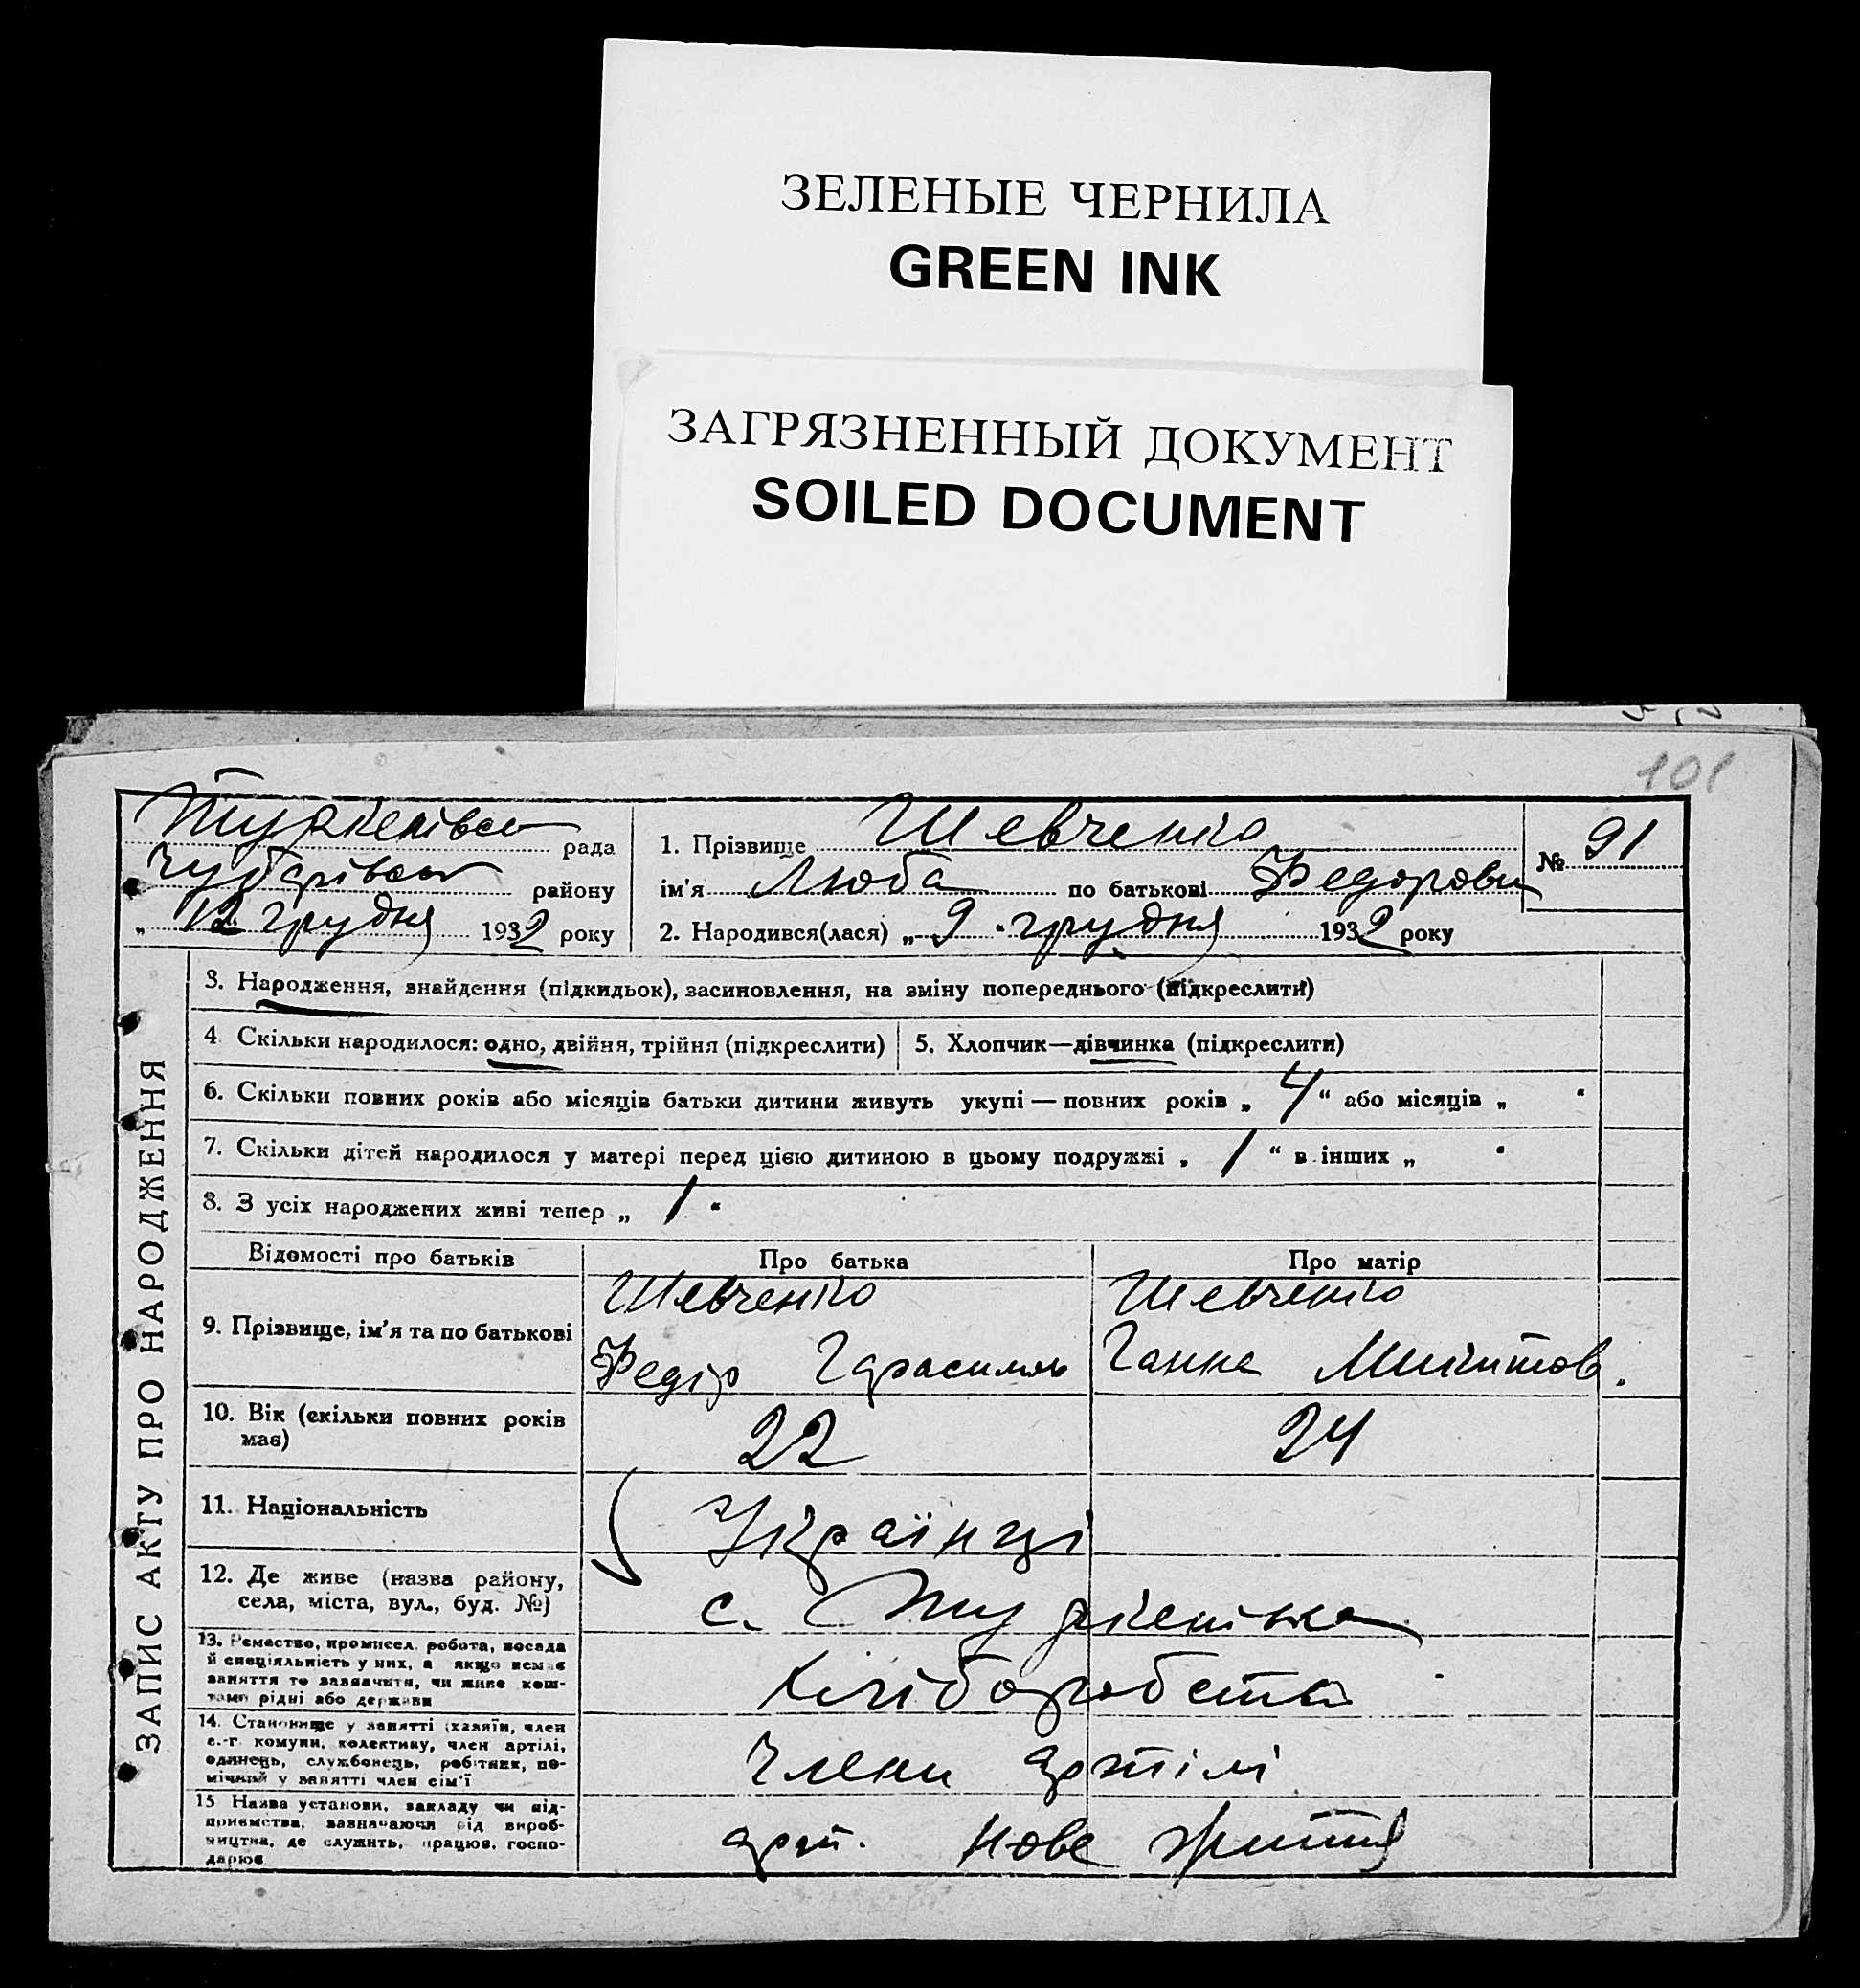 ЗЕЛЕНЫЕ ЧЕРНИЛА
GREEN INK
ЗАГРЯЗНЕННЫЙ ДОКУМЕНТ
SOILED DOCUMENT
101
Туркенівск рада
Чубарівськ району
„ 12 грудня 1932 року
1. Прізвище Шевченко
ім'я Люба по батькові Федоровн
№ 91
2. Народився(лася) „ 9 " грудня 1932 року
ЗАПИС АКТУ ПРО НАРОДЖЕННЯ
3. Народження, знайдення (підкидьок), засиновлення, на зміну попереднього (підкреслити)
4. Скільки народилося: одно, двійня, трійня (підкреслити)
5. Хлопчик—дівчинка (підкреслити)
6. Скільки повних років або місяців батьки дитини живуть укупі — повних років „ 4 “ або місяців „ “
7. Скільки дітей народилося у матері перед цією дитиною в цьому подружжі „ 1 “ в інших „ “
8. З усіх народжених живі тепер „ 1 “
Відомості про батьків Про батька Про матір
9. Прізвище, ім'я та по батькові
Шевченко Шевченко
Федір Гарасимов Ганна Микитов.
10. Вік (скільки повних років
має)
22 24
11. Національність
Українці
12. Де живе (назва району,
села, міста, вул., буд. №)
с. Туркенівка
13. Ремество, промисел, робота, посада
й спеціяльність у них, а якщо немає
заняття то зазначити, чи живе кош-
тами рідні або держави
Хліборобства
14. Становище у занятті (хазяїн, член
с.-г. комуни, колективу, член артілі,
одинець, службовець, робітник, по-
мічний у занятті член сім'ї
Члени артілі
15 Назва установи, закладу чи під-
приємства, зазначаючи рід вироб-
ництва, де служить, працює, госпо-
дарює
арт. Нове життя